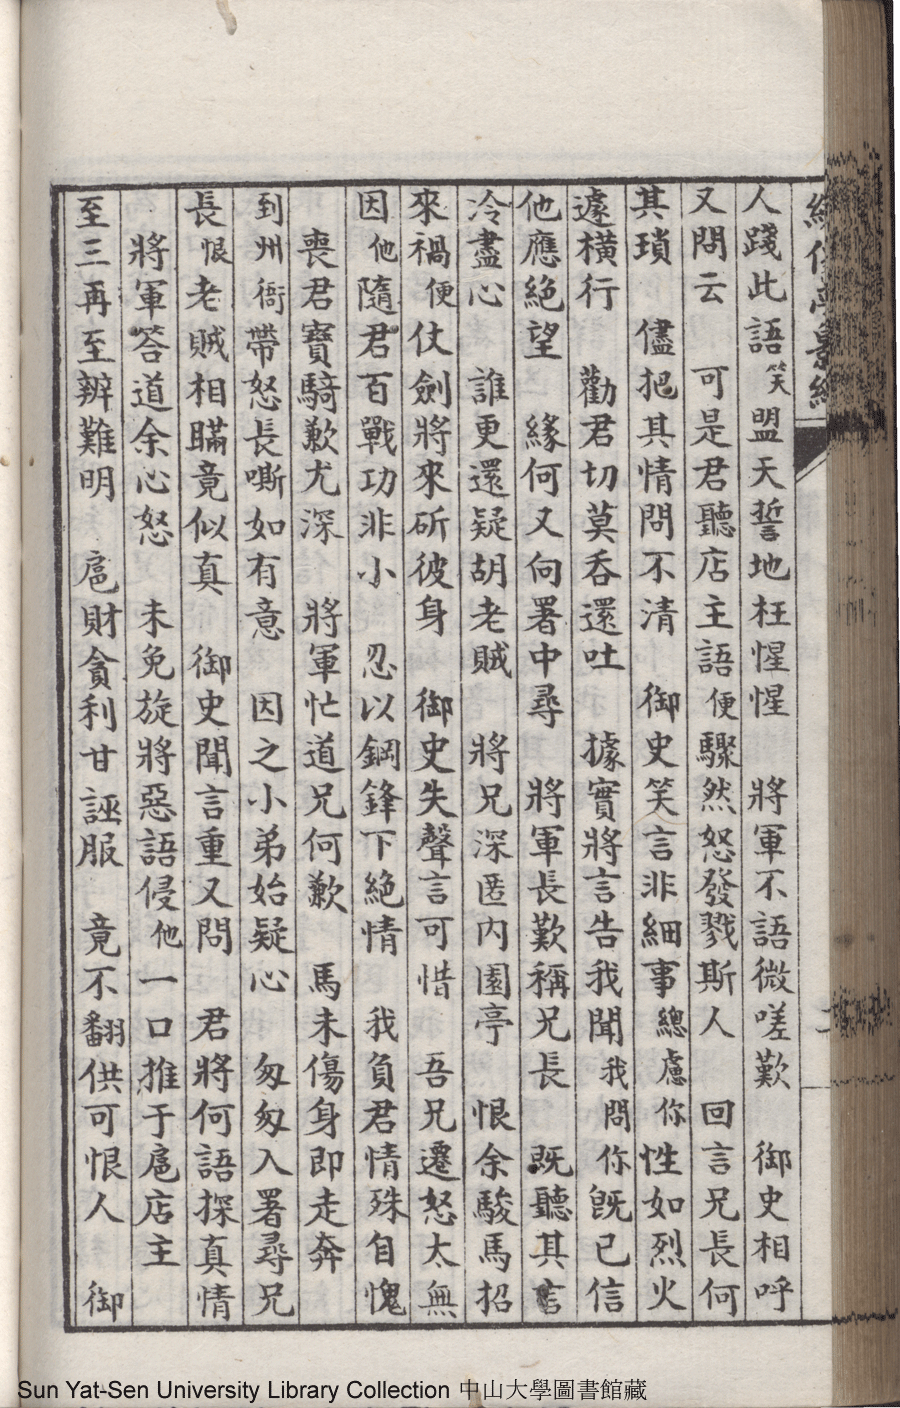 人踐此語笑盟天誓地枉惺惺　將軍不語微嗟歎　御史相呼
又問云　可是君聽店主語便驟然怒發戮斯人　回言兄長何
其瑣　儘把其情問不清　御史笑言非細事總慮你性如烈火
遽橫行　勸君切莫吞還吐　據實將言告我聞我問你旣已信
他應絕望　緣何又向署中尋　將軍長歎稱兄長　旣聽其言
冷盡心　誰更還疑胡老賊　將兄深匿內園亭　恨余駿馬招
來禍便仗劍將來斫彼身　御史失聲言可惜　吾兄遷怒太無
因他隨君百戰功非小　忍以鋼鋒下絕情　我負君情殊自愧
喪君寶騎歉尤深　將軍忙道兄何歉　馬未傷身即走奔
到州衙帶怒長嘶如有意　因之小弟始疑心　匆匆入署尋兄
長恨老賊相瞞竟似真　御史聞言重又問　君將何語探真情
將軍答道余心怒　未免旋將惡語侵他一口推于扈店主
至三再至辨難明　扈財貪利甘誣服　竟不翻供可恨人　御
Sun Yat-Sen University Library Collection 中山大學圖書館藏